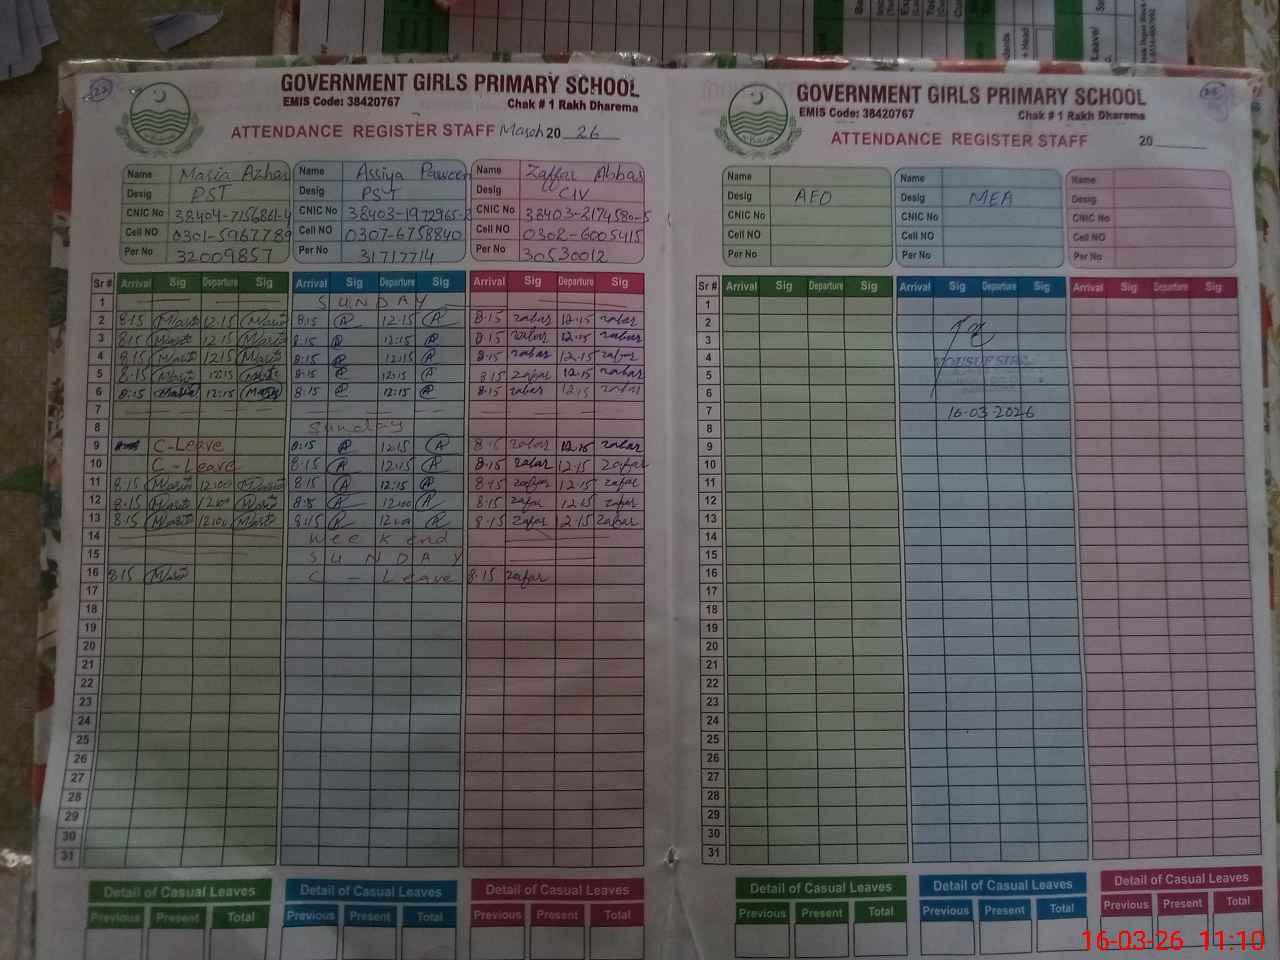 GOVERNMENT GIRLS PRIMARY SCHOOL
EMIS Code: 38420767 Chak # 1 Rakh Dharema
ATTENDANCE REGISTER STAFF March 20 26
Name Name Assiya Parveen Name Zaffar Abbas
Desig PST Desig PST Desig CIV
CNIC No 38404-7156861-4 CNIC No 38403-1972965-2 CNIC No 38403-2174580-5
Cell NO 0301-5967789 Cell NO 0307-6758840 Cell NO 0302-6005415
Per No 32009857 Per No 31717714 Per No 30530012
Sr # Arrival Sig Departure Sig Arrival Sig Departure Sig Arrival Sig Departure Sig
1 SUNDAY
2 8:15 12:15 8:15 12:15 8:15 zafar 12:15 zafar
3 8:15 12:15 8:15 12:15 8:15 zafar 12:15 zafar
4 8:15 12:15 8:15 12:15 8:15 zafar 12:15 zafar
5 8:15 12:15 8:15 12:15 8:15 zafar 12:15 zafar
6 8:15 12:15 8:15 12:15 8:15 zafar 12:15 zafar
7
8 Sunday
9 C-Leave 8:15 12:15 8:15 zafar 12:15 zafar
10 C-Leave 8:15 12:15 8:15 zafar 12:15 zafar
11 8:15 12:00 8:15 12:15 8:15 zafar 12:15 zafar
12 8:15 12:00 12:00 8:15 zafar 12:15 zafar
13 8:15 12:00 8:15 12:00 8:15 zafar 12:15 zafar
14 Week end
15 SUNDAY
16 8:15 C - Leave 8:15 zafar
17
18
19
20
21
22
23
24
25
26
27
28
29
30
31
Detail of Casual Leaves Detail of Casual Leaves Detail of Casual Leaves
Previous Present Total Previous Present Total Previous Present Total
GOVERNMENT GIRLS PRIMARY SCHOOL
EMIS Code: 38420767 Chak # 1 Rakh Dharema
ATTENDANCE REGISTER STAFF 20
Name Name Name
Desig AEO Desig MEA Desig
CNIC No CNIC No CNIC No
Cell NO Cell NO Cell NO
Per No Per No Per No
Sr # Arrival Sig Departure Sig Arrival Sig Departure Sig Arrival Sig Departure Sig
1
2
3
4
5
6
7 16-03-2026
8
9
10
11
12
13
14
15
16
17
18
19
20
21
22
23
24
25
26
27
28
29
30
31
Detail of Casual Leaves Detail of Casual Leaves Detail of Casual Leaves
Previous Present Total Previous Present Total Previous Present Total
16-03-26 11:10